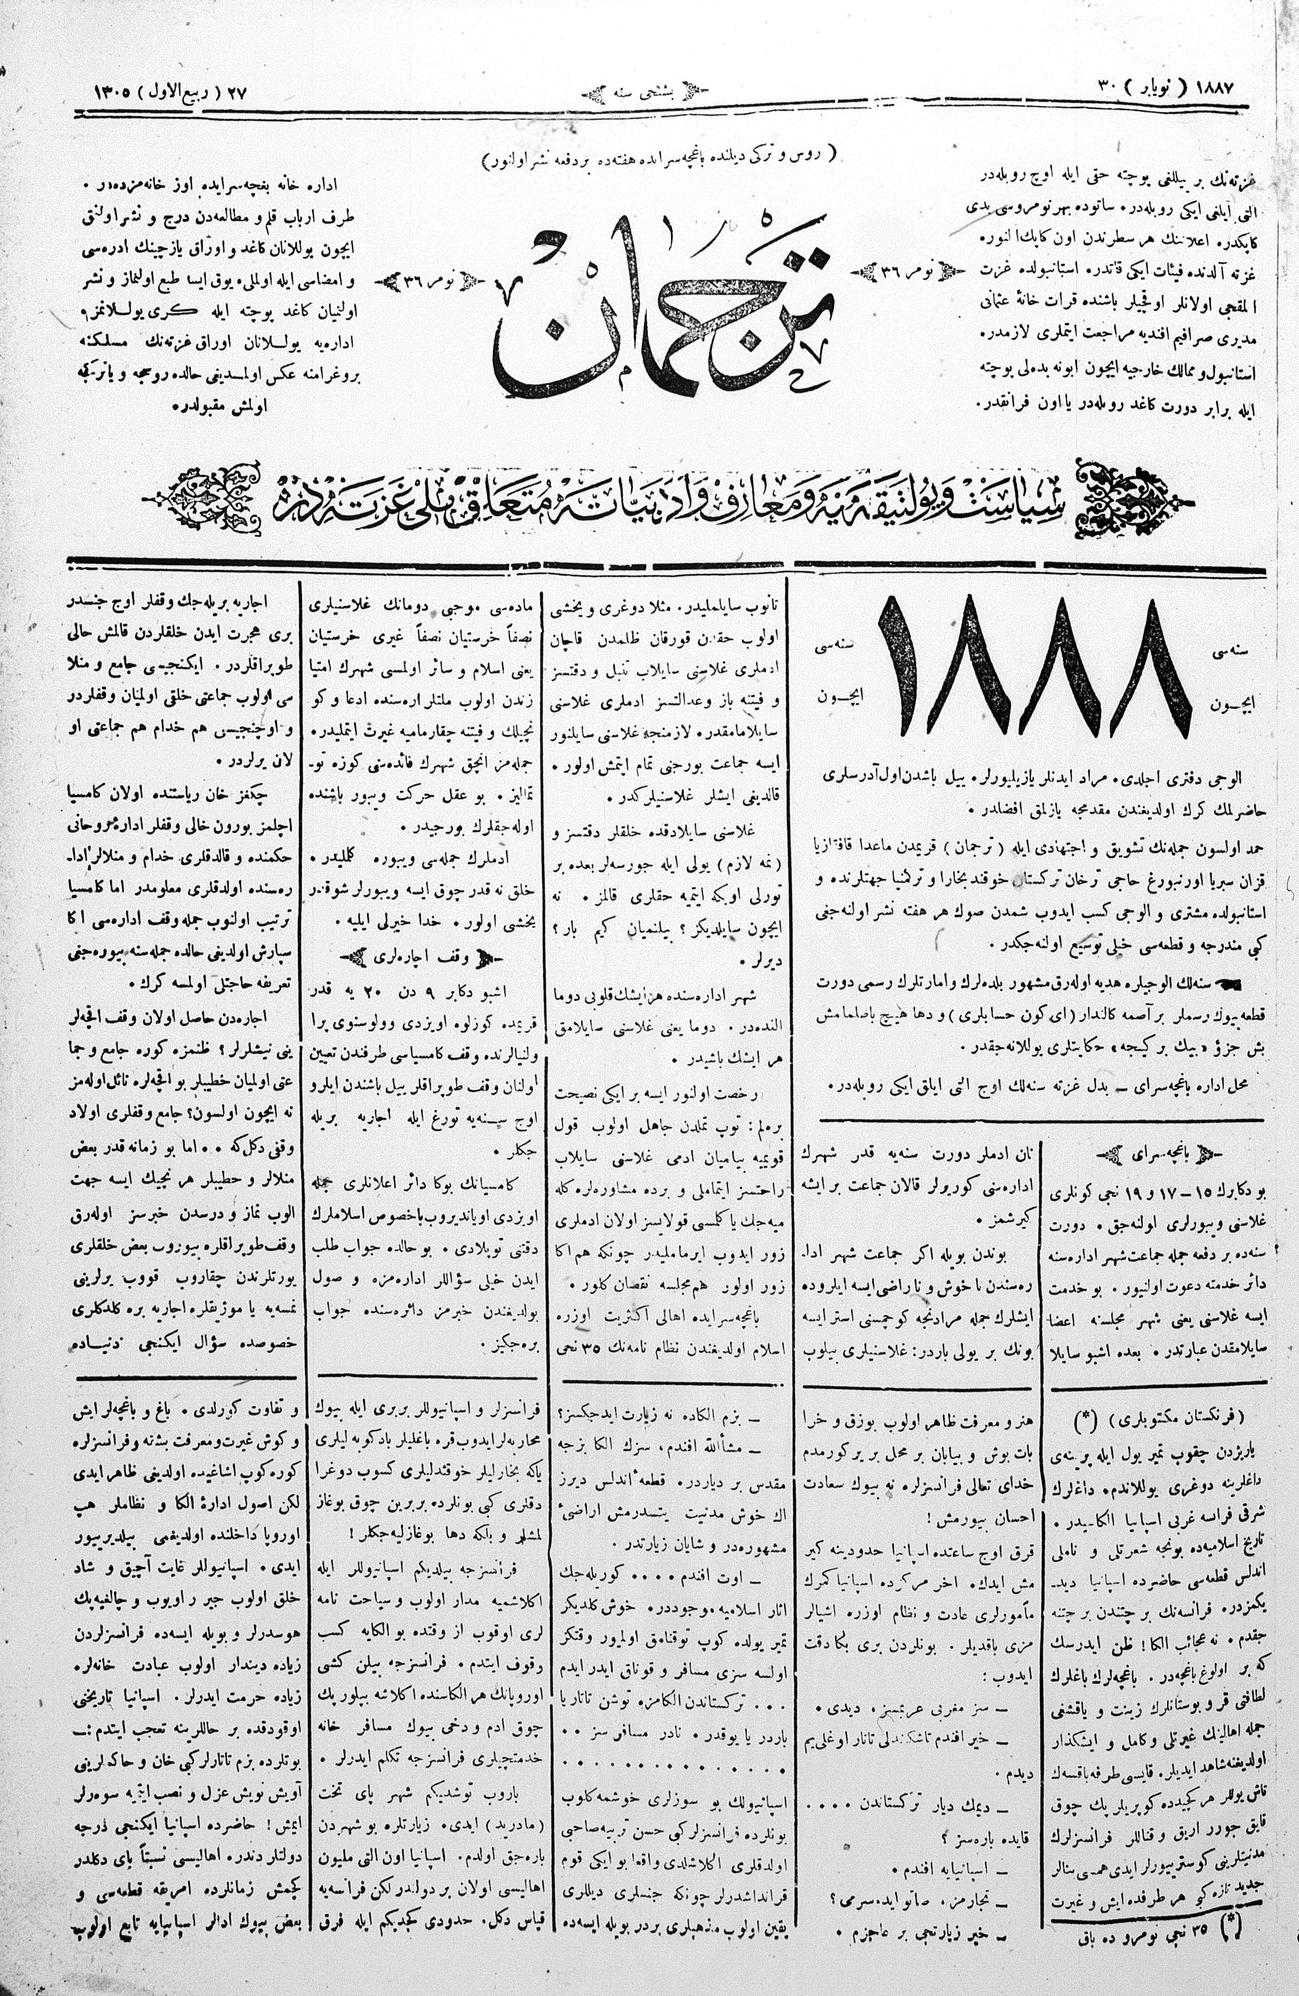 ١٨٨٧ ( نويابر ) ٣٠
بشنجى سنه
٢٧ ( ربيع الاول ) ١٣٠٥
( روس و تركى ديلنده باغچه سرايده هفته ده بر دفعه نشر اولنور )
غزته نك بر ييللغى پوچته حقى ايله اوچ روبله در
التى ايلغى ايكى روبله در٠ ساتوده بهر نومروسى يدى
كاپكدر٠ اعلاننك هر سطرندن اون كاپك النور٠
غزته آلدنده فيئات ايكى قاتدر٠ استانبولده غزت
المقجى اولانلر اوقجيلر باشنده قرات خانهٔ عثمانى
مديرى صرافيم افنديه مراجعت ايتملرى لازمدر٠
استانبول و ممالك خارجيه ايچون ابونه بدلى پوچته
ايله برابر دورت كاغد روبله در يا اون فرانقدر.
نومر ٣٦
ترجمان
نومر ٣٦
اداره خانه بغچه سرايده اوز خانه مزده در ٠
طرف ارباب قلم و مطالعه دن درج و نشر اولنق
ايچون يوللانان كاغد و اوراق يازچينك ادره سى
و امضاسى ايله اولملى٠ يوق ايسا طبع اولنماز و نشر
اولنميان كاغد پوچته ايله كرى يوللانمز٠
اداره يه يوللانان اوراق غزته نك مسلكنه
بروغرامنه عكس اولمديغى حالده روسجه و يا تركچه
اولمش مقبولدر٠
سياست و پولتيقه يه و معارف و ادبياته متعلق ملى غزته در
سنه سى
ايچون
١٨٨٨
سنه سى
ايچون
الوجى دفترى اچلدى٠ مراد ايدنلر يازيليورلر٠ ييل باشدن اول آدرسلرى
حاضرلمك كرك اولديغندن مقدمجه يازلمق افضلدر٠
حمد اولسون جمله نك تشويق و اجتهادى ايله ( ترجمان ) قريمدن ماعدا قافقازيا
قزان سبريا اورنبورغ حاجى ترخان تركستان خوقند بخارا و تركمنيا جهتلرنده و
استانبولده مشترى و الوجى كسب ايدوب شمدن صوك هر هفته نشر اولنه جغى
كبى مندرجه و قطعه سى خيلى توسيع اولنه جكدر ٠
سنه لك الوجيلره هديه اوله رق مشهور بلده لرك و امارتلرك رسمى دورت
قطعه بيوك رسملر بر آصمه كالندار ( اى كون حسابلرى ) و دها هيچ باصلمامش
بش جزؤ «بيك بر كيجه» حكايتلرى يوللانه جقدر ٠
محل اداره باغچه سراى ــ بدل غزته سنه لك اوچ التى ايلق ايكى روبله در٠
باغچه سراى
بو دكابرك ١٥ ــ ١٧ و ١٩ نجى كونلرى
غلاسنى ويبورلرى اولنه جق ٠ دورت
سنه ده بر دفعه جمله جماعت شهر اداره سنه
دائر خدمته دعوت اولنيور ٠ بو خدمت
ايسه غلاسنى يعنى شهر مجلسنه اعضا
سايلامقدن عبارتدر ٠ بعده اشبو سايلا
نان ادملر دورت سنه يه قدر شهرك
اداره سنى كوريرلر قالان جماعت بر ايشه
كيرشمز ٠
بوندن بويله اكر جماعت شهر ادا٠
ره سندن ناخوش و ناراضى ايسه ايلروده
ايشلرك جمله مرادنجه كوچمسنى استر ايسه
بونك بر يولى باردر: غلاسنيلرى بيلوب
تانوب سايلمليدر٠ مثلا دوغرى و يخشى
اولوب حقدن قورقان ظلمدن قاچان
ادملرى غلاسنى سايلاب تنبل و دقتسز
و فيتنه باز و عدالتسز ادملرى غلاسنى
سايلامامقدر٠ لازمنجه غلاسنى سايلنور
ايسه جماعت بورجنى تمام ايتمش اولور ٠
قالديغى ايشلر غلاسنيلر كدر٠
غلاسنى سايلادقده خلقلر دقتسز و
( نمه لازم ) يولى ايله جورسه لر بعده بر
تورلى اوپكه ايتميه حقلرى قالمز ٠ نه
ايچون سايلديكز ؟ بيلنميان كيم بار ؟
ديرلر ٠
شهر اداره سنده هر ايشك قلوبى دوما
النده در٠ دوما يعنى غلاسنى سايلامق
هر ايشك باشيدر ٠
رخصت اولنور ايسه بر ايكى نصيحت
بره لم : توپ تملدن جاهل اولوب قول
قويميه بيلميان ادمى غلاسنى سايلاب
راحتسز ايتماملى و برده مشاوره لره كله
ميه جك يا كلمسى قولايسز اولان ادملرى
زور ايدوب ايرماملیدر چونكه هم اكا
زور اولور هم مجلسه نقصان كلور ٠
باغچه سرايده اهالى اكثريت اوزره
اسلام اولديغندن نظام نامه نك ٣٥ نجى
ماده سى موجبى دومانك غلاسنيلرى
نصفاً خرستيان نصفاً غيرى خرستيان
يعنى اسلام و سائر اولمسى شهرك امتيا
زندن اولوب ملتلر اره سنده ادعا و كو
نچيلك و فيتنه چقارماميه غيرت ايتمليدر٠
جمله مز انچق شهرك فائده سنى كوزه تو٠
تماليز ٠ بو عقل حركت ويبور باشنده
اوله جقلرك بورجيدر ٠
ادملرك جمله سى ويبوره كلمليدر ٠
خلق نه قدر چوق ايسه ويبورلر شوقدر
يخشى اولور ٠ خدا خيرلى ايليه ٠
وقف اجاره لرى
اشبو دكابر ٩ دن ٢٠ يه قدر
قريمده كوزلوه اويزدى وولوسنوى پرا
ولنيالرنده وقف كامسياسى طرفندن تعيين
اولنان وقف طوپراقلر ييل باشندن ايلرو
اوچ سنه يه تورغ ايله اجاريه بريله
جكلر ٠
كامسيانك بوكا دائر اعلانلرى جمله
اويزدى اوياندیروب باخصوص اسلاملرك
دقتنى توپلادى ٠ بو حالده جواب طلب
ايدن خيلى سؤاللر اداره مزه و صول
بولديغندن خبرمز دائره سنده جواب
بره جكيز ٠
اجاريه بريله جك وقفلر اوچ جنسدر
برى هجرت ايدن خلقلردن قالمش خالى
طوپراقلردر ٠ ايكنجيسى جامع و منلا
سى اولوب جماعتى خلقى اولميان وقفلردر
و اوچنجيسى هم خدام هم جماعتى او
لان يرلردر ٠
چنكز خان رياستنده اولان كامسيا
اچلمز بورون خالى وقفلر ادارهٔ روحانى
حكمنده و قالدقلرى خدام و منلالر ادا٠
ره سنده اولدقلرى معلومدر اما كامسيا
ترتيب اولنوب جمله وقف اداره سى اكا
سپارش اولديغى حالده جمله سنه بيوره جغى
تعريفه حاجتلى اولمسه كرك ٠
اجاره دن حاصل اولان وقف اقچه لر
ينى نيشلرلر ؟ ظنمزه كوره جامع و جما
عتى اولميان خطيبلر بو اقچه لره نائل اوله مز
نه ايچون اولسون؟ جامع وقفلرى اولاد
وقفى دكل كه ٠٠ اما بو زمانه قدر بعض
منلالر و خطيبلر هر نچيك ايسه جهت
الوب نماز و درسدن خبرسز اوله رق
وقف طوپراقلره بيوروب بعض خلقلرى
يورتلرندن چقاروب قووب يرلرينى
نمسه يه يا موژيقلره اجاريه بره كلدكلرى
خصوصده سؤال ايكنجى دنياده
( فرنكستان مكتوبلرى ) (*)
پاريژدن چقوب تمير يول ايله پرينه ى
داغلرينه دوغرى يوللاندم٠ داغلرك
شرقى فرانسه غربى اسپانيا الكاسيدر ٠
تاريخ اسلاميه ده بونجه شعرتلى و ناملى
اندلس قطعه سى حاضرده اسپانيا ديد٠
يكمزدر٠ فرانسه نك بر چتندن بر چتنه
چقدم ٠ نه عجائب الكا! ظن ايدرسك
كه بر اولوغ باغچه در٠ باغچه لرك باغلرك
لطافتى قر و بوستانلرك زينت و ياقشغى
جمله اهالينك غيرتلى و كامل و ايشكذار
اولديغنه شاهد ايديلر٠ قايسى طرفه باقسه ك
تاش يوللر هر كچيدده كوپريلر پك چوق
قايق جورر اريق و قناللر فرانسزلرك
مدنيتلرينى كوستريورلر ايدى همسى بنالر
جديد تازه كبى هر طرفده ايش و غيرت
(*) ٣٥ نجى نومروده باق
هنر و معرفت ظاهر اولوب بوزق و خرا
بات بوش و بيابان بر محل بر ير كورمدم
خداى تعالى فرانسزلره نه بيوك سعادت
احسان بيورمش !
قرق اوچ ساعتده اسپانيا حدودينه كير
مش ايدك٠ اخر مركزده اسپانيا كمرك
مأمورلرى عادت و نظام اوزره اشيالر
مزى باقديلر ٠ بونلردن برى بكا دقت
ايدوب :
ــ سز مغربى عربمسز٠ ديدى ٠
ــ خير افندم تاشكندلى تاتار اوغلى يم
ديدم ٠
ــ ديمك ديار تركستاندن ٠٠٠٠
قايده باره سز ؟
ــ اسپانيايه افندم ٠
ــ تجارمز٠ صاتو ايده سزمى؟
ــ خير زيارتجى بر عاجزم ٠
ــ بزم الكاده نه زيارت ايدجكسز؟
ــ مشأالله افندم٠ سزك الكا بزجه
مقدس بر دياردر٠ قطعهٔ اندلس ديرز
اك خوش مدنيت يتسدرمش اراضىٔ
مشهوره در و شايان زيارتدر.
ــ اوت افندم ٠٠٠٠ كوريله جك
اثار اسلاميه موجوددر٠ خوش كلديكز
تمير يولده كوپ توقتاق اولميور وقتكز
اولسه سزى مسافر و قوناق ايدر ايدم
٠٠٠ تركستاندن الكامزه توشن تاتار يا
باردر يا يوقدر ٠ نادر مسافرسز ٠٠
٠٠٠٠٠٠٠٠٠٠٠٠٠
اسپانيولك بو سوزلرى خوشمه كلوب
بونلرده فرانسزلر كبى حسن تربيه صاحبى
اولدقلرى اكلاشلدى واقعا بو ايكى قوم
قرانداشدرلر چونكه جنسلرى ديللرى
يقين اولوب مذهبلرى بردر بويله ايسه ده
فرانسزلر و اسپانيوللر بربرى ايله بيوك
محاربه لر ايدوب قره باغليلر بادكوبه ليلرى
ياكه بخاراليلر خوقنديلرى كسوب دوغرا
دقلرى كبى بونلرده بربرين چوق بوغاز
لمشلر و بلكه دها بوغازليه جكلر !
فرانسزجه بيلديكم اسپانيوللر ايله
اكلاشميه مدار اولوب و سياحت نامه
لرى اوقوب از وقتده بو الكايه كسب
رقوف ايتدم ٠ فرانسزجه بيلن كشى
اوروپانك هر الكاسنده اكلاشه بيلور پك
چوق ادم و دخى بيوك مسافر خانه
خدمتچيلرى فرانسزجه تكلم ايدرلر ٠
باروب توشديكم شهر پاى تخت
( مادريد ) ايدى ٠ زيارتلره بو شهردن
باره جق اولدم ٠ اسپانيا اون التى مليون
اهاليسى اولان بر دولتدر لكن فرانسه يه
قياس دكل٠ حدودى كچديكم ايله فرق
و تفاوت كورلدى ٠ باغ و باغچه لر ايش
و كوش غيرت و معرفت بشنه و فرانسزلره
كوره كوپ اشاغيده اولديغى ظاهر ايدى
لكن اصول ادارهٔ الكا و نظاملر هپ
اوروپا داخلنده اولديغنى بيلديريور
ايدى ٠ اسپانيوللر غايت آچيق و شاد
خلق اولوب جير راويوب و چالغيه پك
هوسدرلر و بويله ايسه ده فرانسزلردن
زياده ديندار اولوب عبادت خانه لره
زياده حرمت ايدرلر ٠ اسپانيا تاريخنى
اوقودقده بر حاللرينه تعجب ايتدم :ــ
بونلرده بزم تاتارلر كبى خان و حاكملرينى
آويش تويش عزل و نصب ايتميه سوه رلر
ايمش! حاضرده اسپانيا ايكنجى درجه
دولتلر دندر٠ اهاليسى نسبتاً باى دكلدر
كچمش زمانلرده امريقه قطعه سى و
بعض بيوك ادالر اسپانيايه تابع اولوب